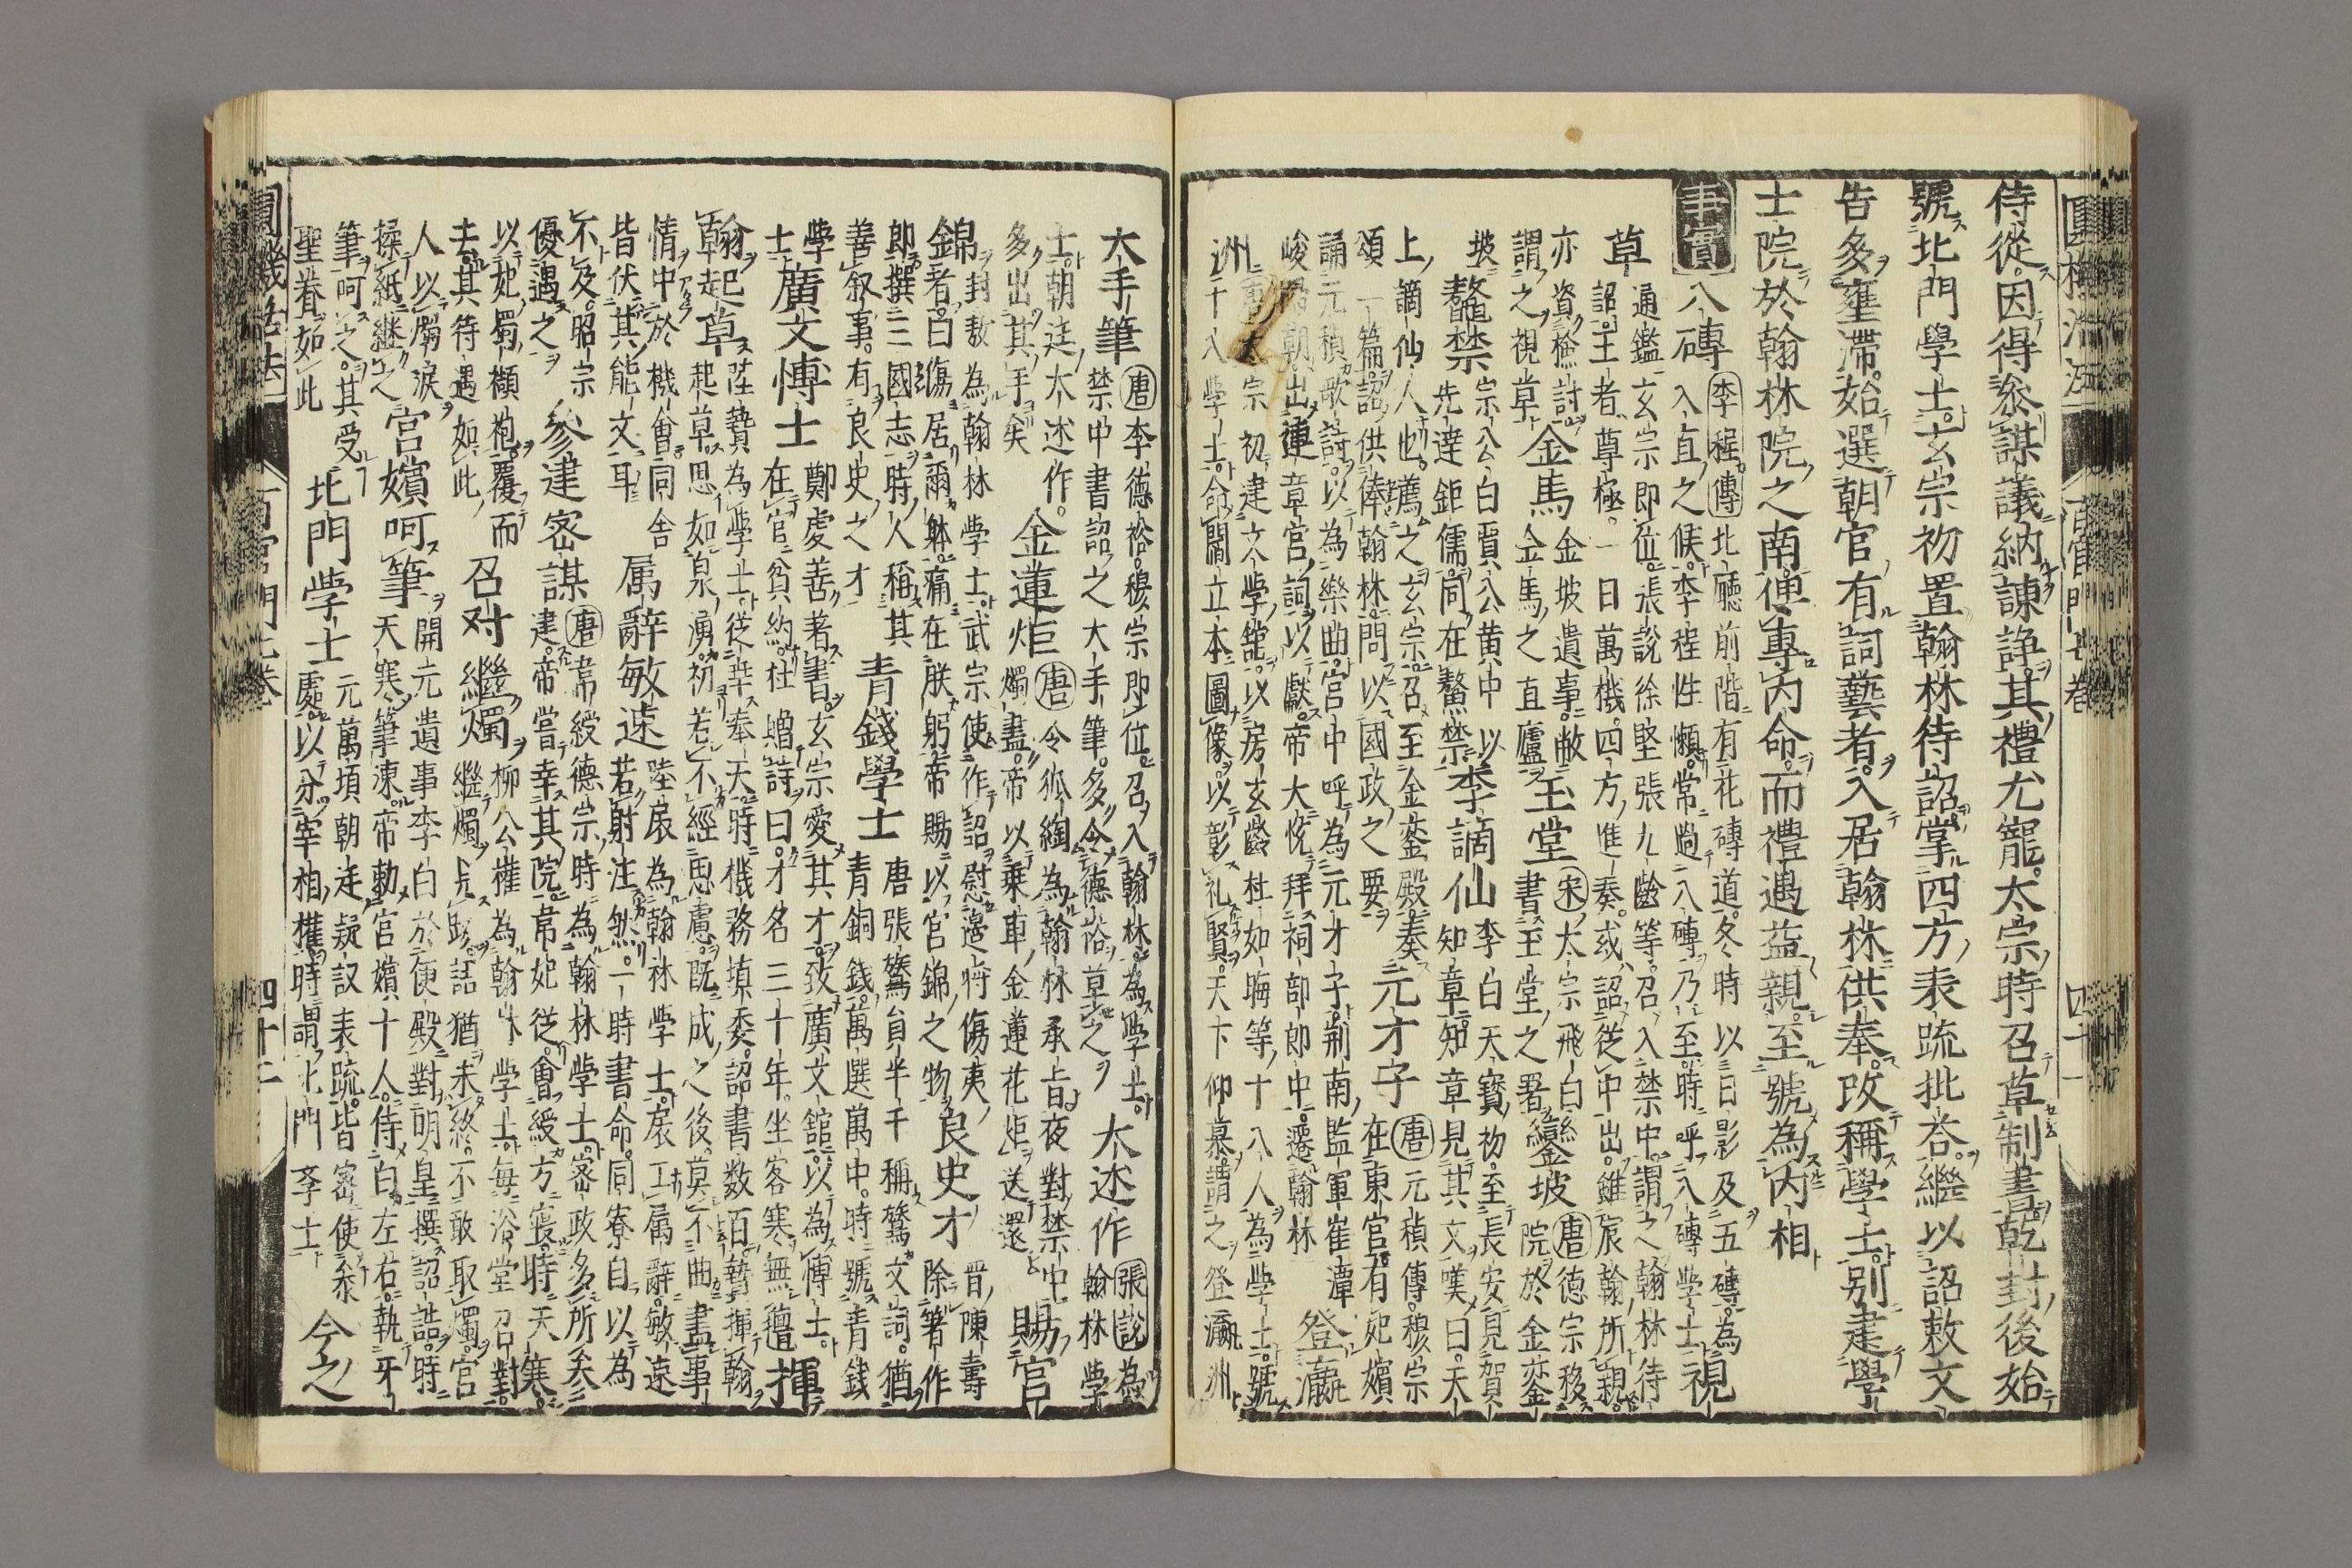 圓機活法 百官門七卷 四十一
侍從因得參謀議納諫諍其禮尤寵太宗時召草制書乾封後始
號北門學士玄宗初置翰林待詔掌四方表疏批荅繼以詔敕文
告多壅滯始選朝官有詞藝者入居翰林供奉改稱學士別建學
士院於翰林院之南俾專内命而禮遇益親至號為内相
事實
八磚 李程傳 北廳前階有花磚道冬時以日影及五磚為
入直之候李程性懶常過八磚乃至時呼八磚學士
視草
通鑑玄宗即位張說徐堅張九齡等召入禁中謂之翰林待
詔王者尊極一日萬機四方進奏或詔從中出雖宸翰所親
亦資檢討
謂之視草
金馬 金坡遺事敝
仝馬之直廬
玉堂 宋太宗飛白
書玉堂之署
鑾坡 唐德宗移
院於金鑾
坡
鼇禁 宗公白賈公黄中以
先達鉅儒同在鰲禁
李謫仙 李白天寶初至長安見賀
知章知章見其文嘆曰天
上謫仙人也薦之玄宗召至金鑾殿奏
頌一篇詔供俸翰林問以國政之要
元才子 唐元稹傳穆宗
在東宫有妃嬪
誦元稹歌詩以為樂曲宫中呼為元才子荆南監軍崔潭
峻歸朝出連章宫詞以獻帝大悦拜祠部郎中遷翰林
登瀛
洲
太宗初建文學館以房玄齡杜如晦等十八人為學士號
十八學士命閻立本圖像以彰礼賢天下仰慕謂之登瀛洲
大手筆 唐李德裕穆宗即位召入翰林為學士
禁中書詔之大手筆多令德裕草之
大述作 張說為
翰林學
士朝廷大述作
多出其手矣
金蓮炬 唐令狐綯為翰林承旨夜對禁中
燭盡帝以乗車金蓮花炬送還
賜宫
錦
封敖為翰林學士武宗使作詔慰邉將傷夷
者曰傷居爾躰痛在朕躬帝賜以宫錦之物
良史才 晋陳壽
除著作
郎撰三國志時人稱其
善叙事有良史之才
青錢學士 唐張鷟員半千稱鷟文詞猶
青銅錢萬選萬中時號青錢
學
士
廣文博士 鄭虔善著書玄宗愛其才致廣文館以為博士
在官貧約杜贈詩曰才名三十年坐客寒無氊
揮
翰起草 陸贄為學士從幸奉天時機務填委詔書数百贄揮翰
起草思如泉湧初若不經思慮既成之後莫不曲盡事
情中於機會同舎
皆伏其能文耳
属辭敏速 陸扆為翰林學士扆工属辭敏速
若射注然一時書命同寮自以為
不及昭宗
優遇之
參建密謀 唐韋綬德宗時為翰林學士密政多所矣
建帝嘗幸其院韋妃從會綬方寝時天寒
以妃蜀襭袍覆而
去其待遇如此
召対繼燭 柳公權為翰林學士毎浴堂召對
繼燭見跋語猶未終不敢取燭宫
人以蠋淚
揉紙継之
宫嬪呵筆 開元遺事李白於便殿對明皇撰詔誥時
天寒筆凍帝勅宫嬪十人侍白左右執牙
筆呵之其受
聖眷如此
北門学士 元萬頃朝廷疑議表疏皆密使參
處以分宰相權時謂北門斈士
今之
圓機活法 百官門七卷 四十二